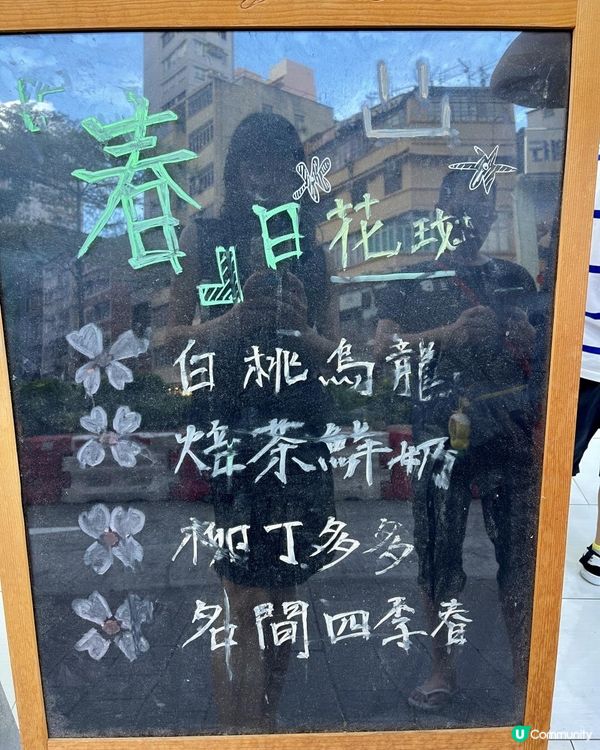 「春」日花戏
白桃烏龍
焙茶鮮奶
柳丁多多
名間四季春
U Community